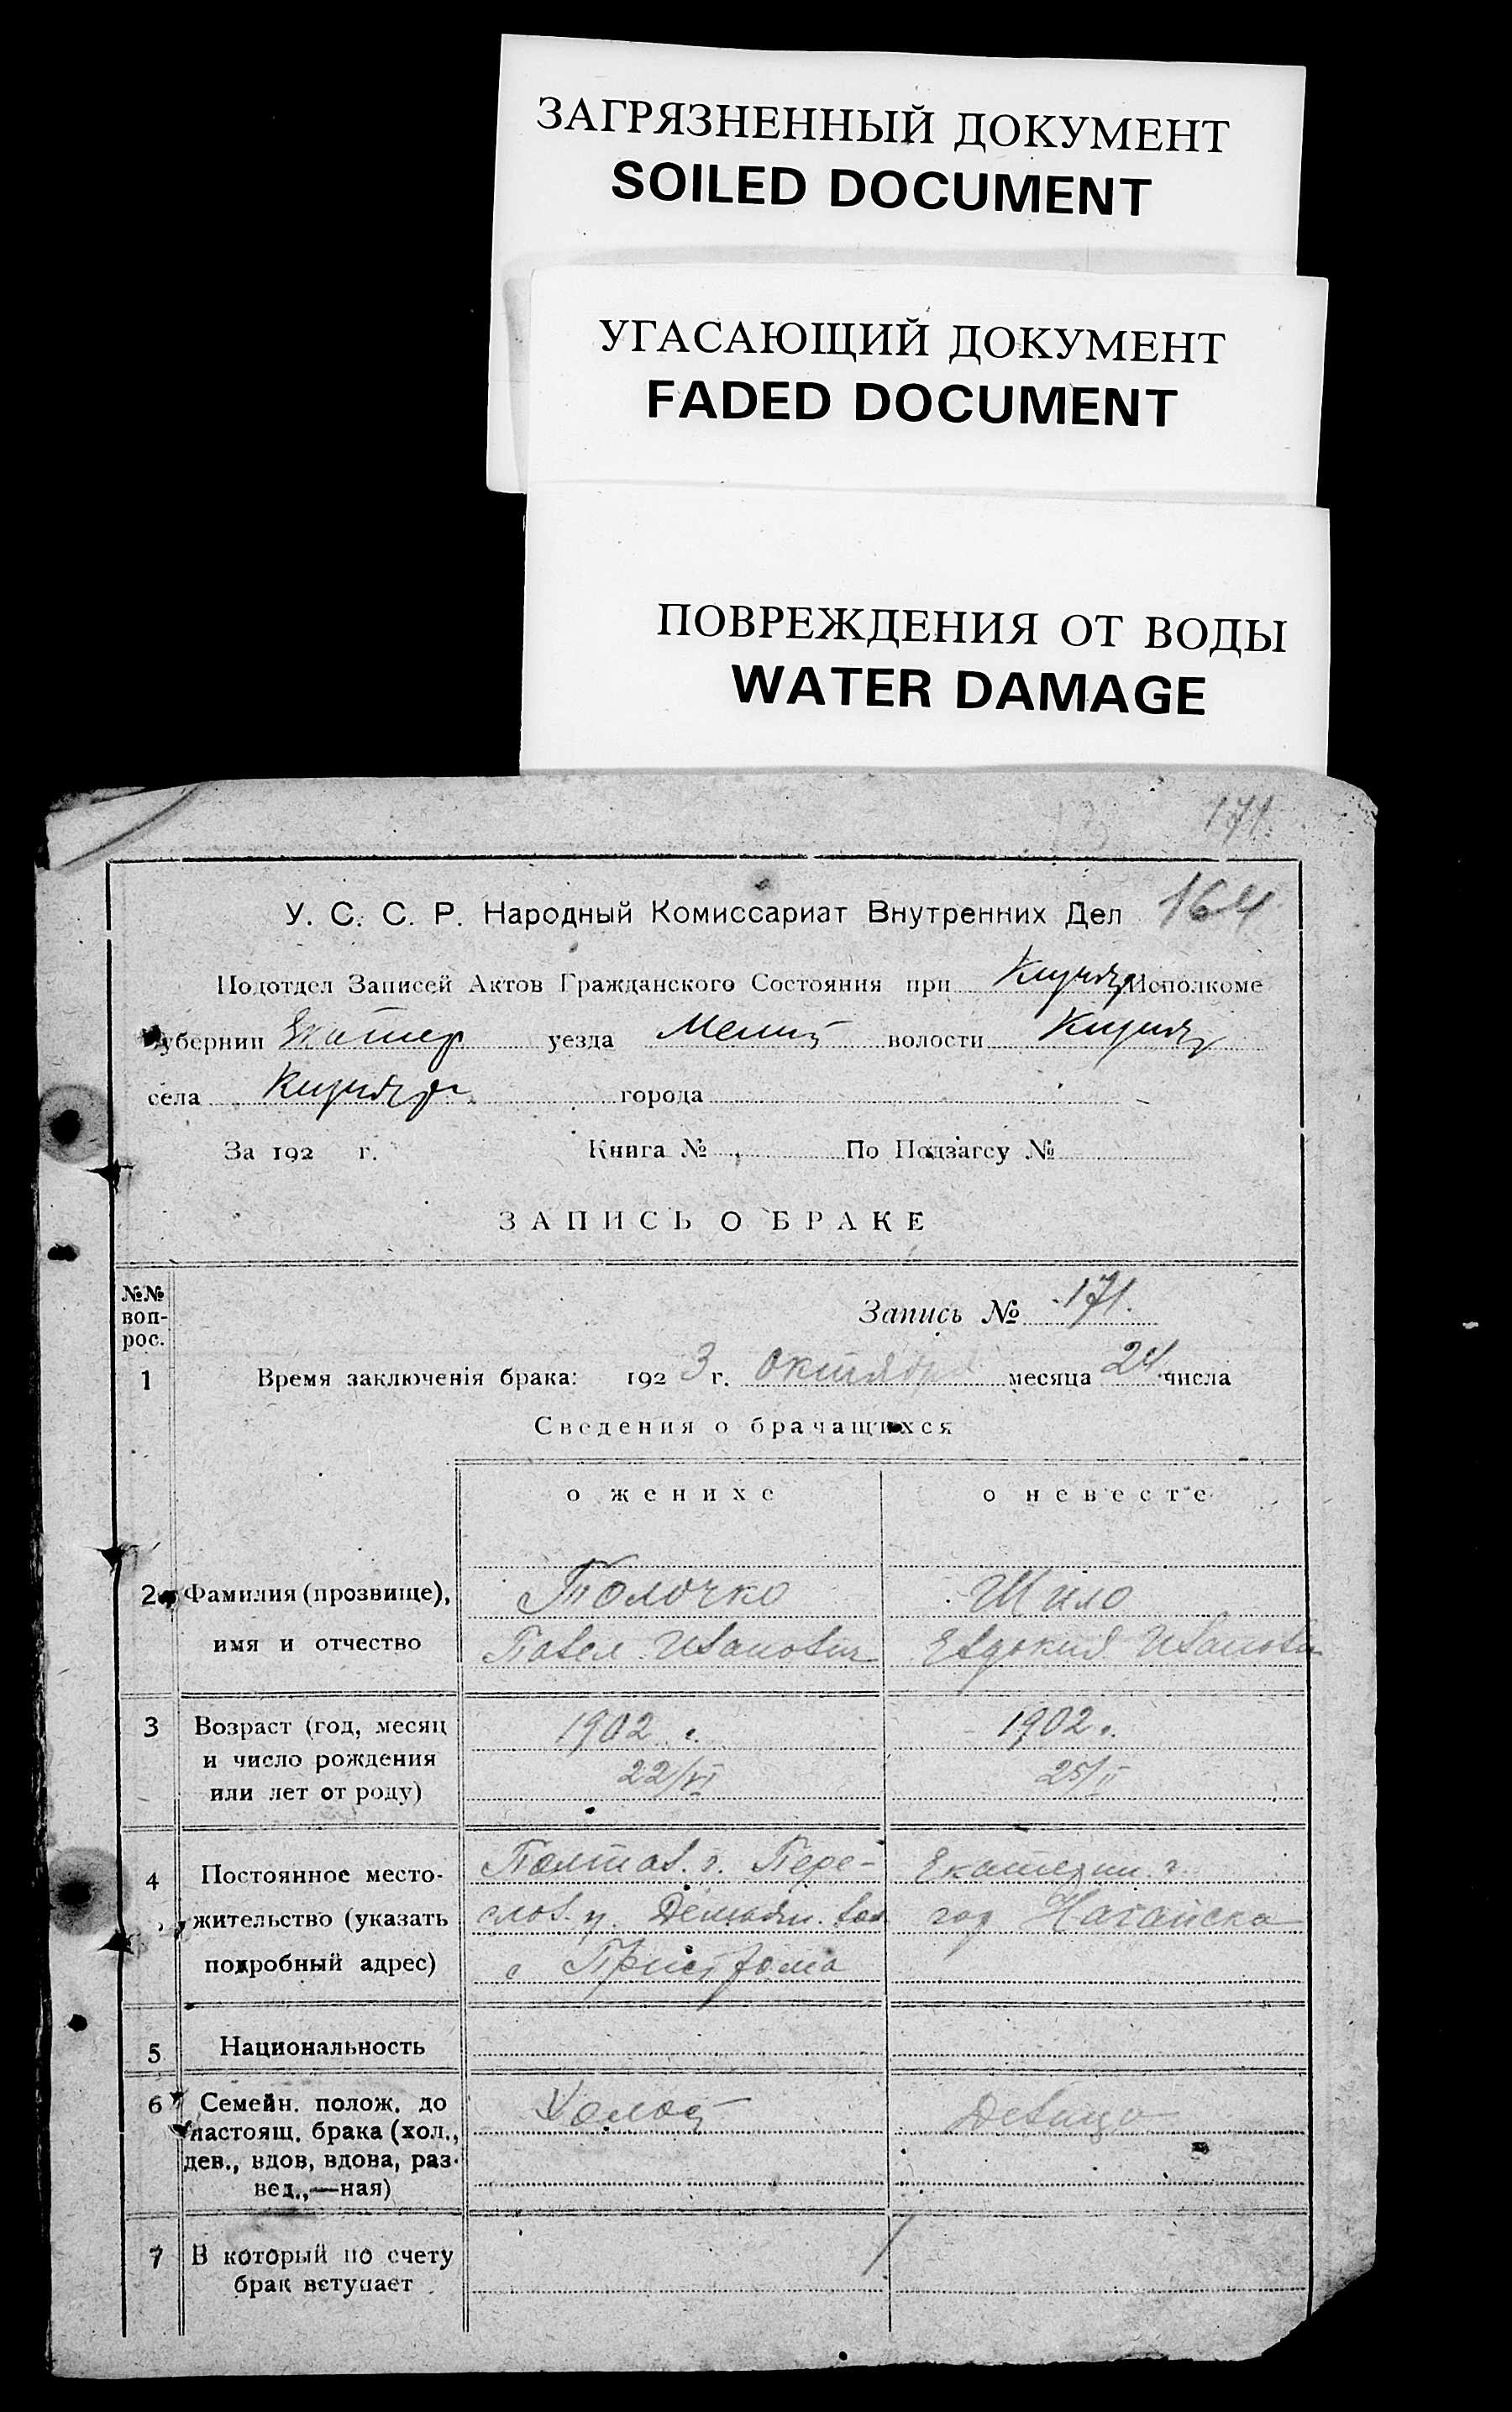 ЗАГРЯЗНЕННЫЙ ДОКУМЕНТ
SOILED DOCUMENT
УГАСАЮЩИЙ ДОКУМЕНТ
FADED DOCUMENT
ПОВРЕЖДЕНИЯ ОТ ВОДЫ
WATER DAMAGE
171.
У. С. С. Р. Народный Комиссариат Внутренних Дел 164
Подотдел Записей Актов Гражданского Состояния при Исполкоме
губернии Екатер уезда Мелит волости
села города
За 192 г. Книга № По Подзагсу №
ЗАПИСЬ О БРАКЕ
№№ воп-рос.
Запись № 171.
1 Время заключенія брака: 1923 г. октября месяца 24 числа
Сведения о брачащихся
о женихе о невесте
2 Фамилия (прозвище), Толочко Шило
имя и отчество Павел Иванович Евдокия Иванов
3 Возраст (год, месяц 1902 г. 1902 г.
и число рождения 22/VI 25/II
или лет от роду)
4 Постоянное место- Полтав. г. Пере- Екатерин. г.
жительство (указать яслов. у. вол гор Ногайска
подробный адрес) с
5 Национальность
6 Семейн. полож. до Холост Девица
настоящ. брака (хол.,
дев., вдов, вдова, раз-
вед.,—ная)
7 В который по счету
брак вступает